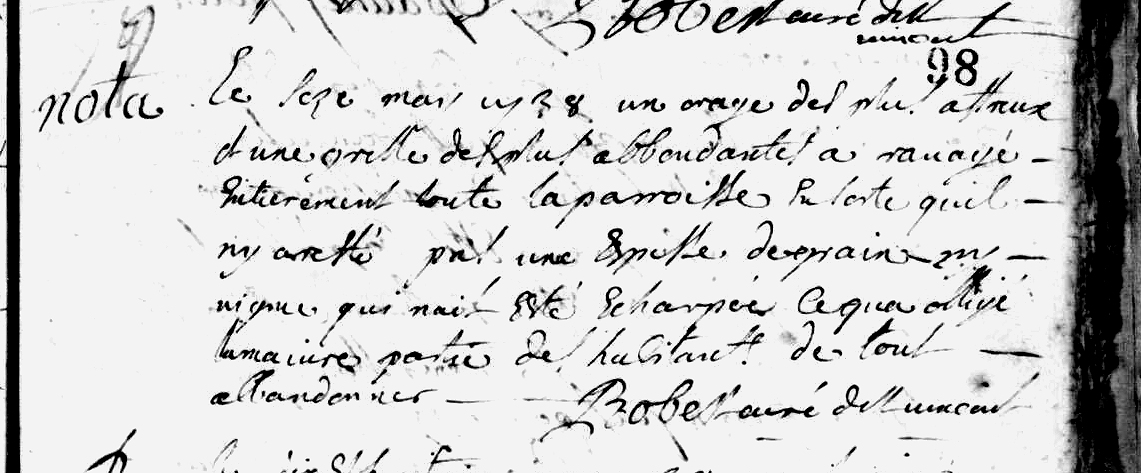 Robert curé de St
vincent
98
nota
Le seze mars 1738 un orage des plus affreux
d'une grelle des plus abbondantes a ravagé
Entièrement toute la parroisse En sorte qu'il
ny a resté pas une Epille de grain ny
vigne qui nait Esté Echarpée Ce qua obligé
la maiure partie des habitants de tout
abbandonner
Robert curé de St vincent